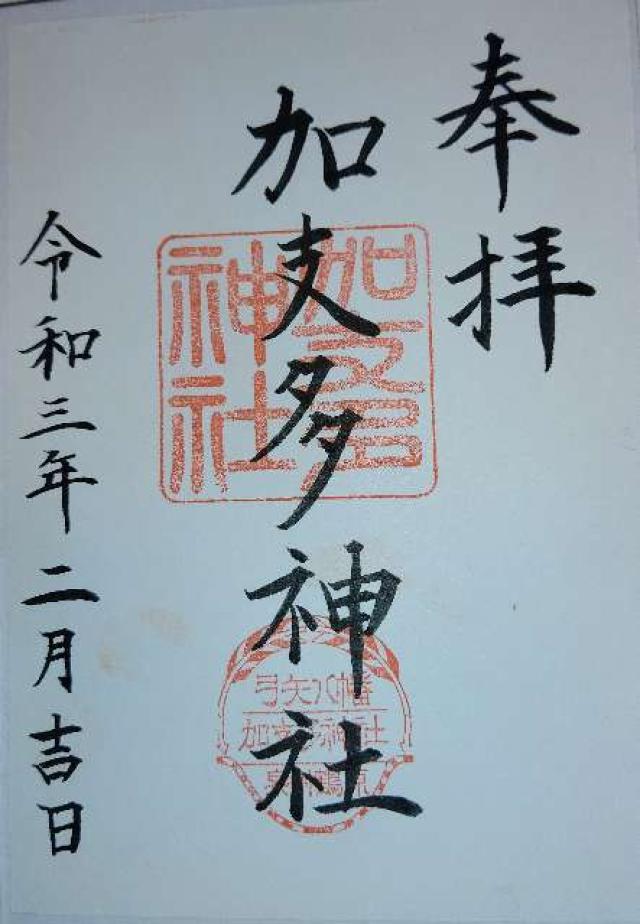 奉拝
加支多神社
令和三年二月吉日
加支多
神社
弓矢八幡